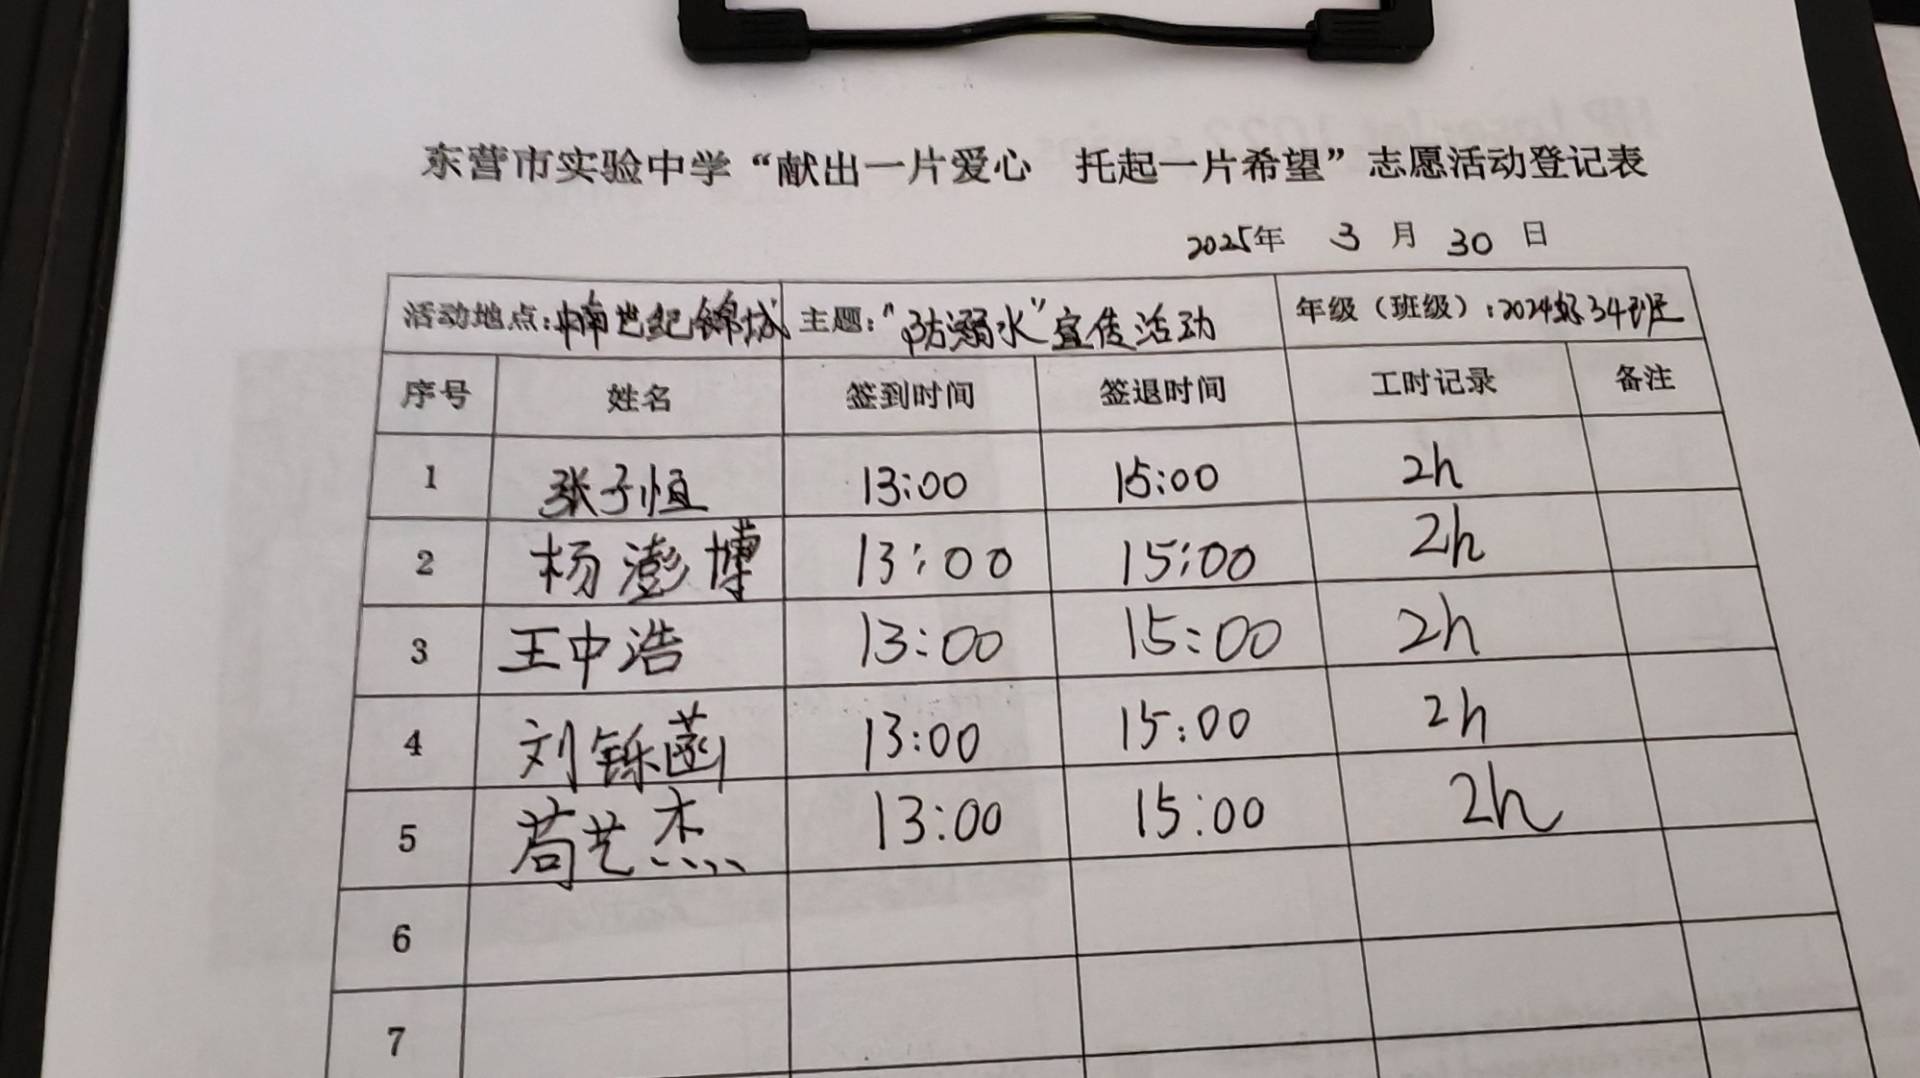 东营市实验中学“献出一片爱心 托起一片希望”志愿活动登记表
2025年 3 月 30 日
活动地点：中南世纪锦城 主题：“防溺水”宣传活动 年级（班级）：2024级34班
序号 姓名 签到时间 签退时间 工时记录 备注
1 张子恒 13:00 15:00 2h
2 杨澎博 13:00 15:00 2h
3 王中浩 13:00 15:00 2h
4 刘铄菡 13:00 15:00 2h
5 苟艺杰 13:00 15:00 2h
6
7